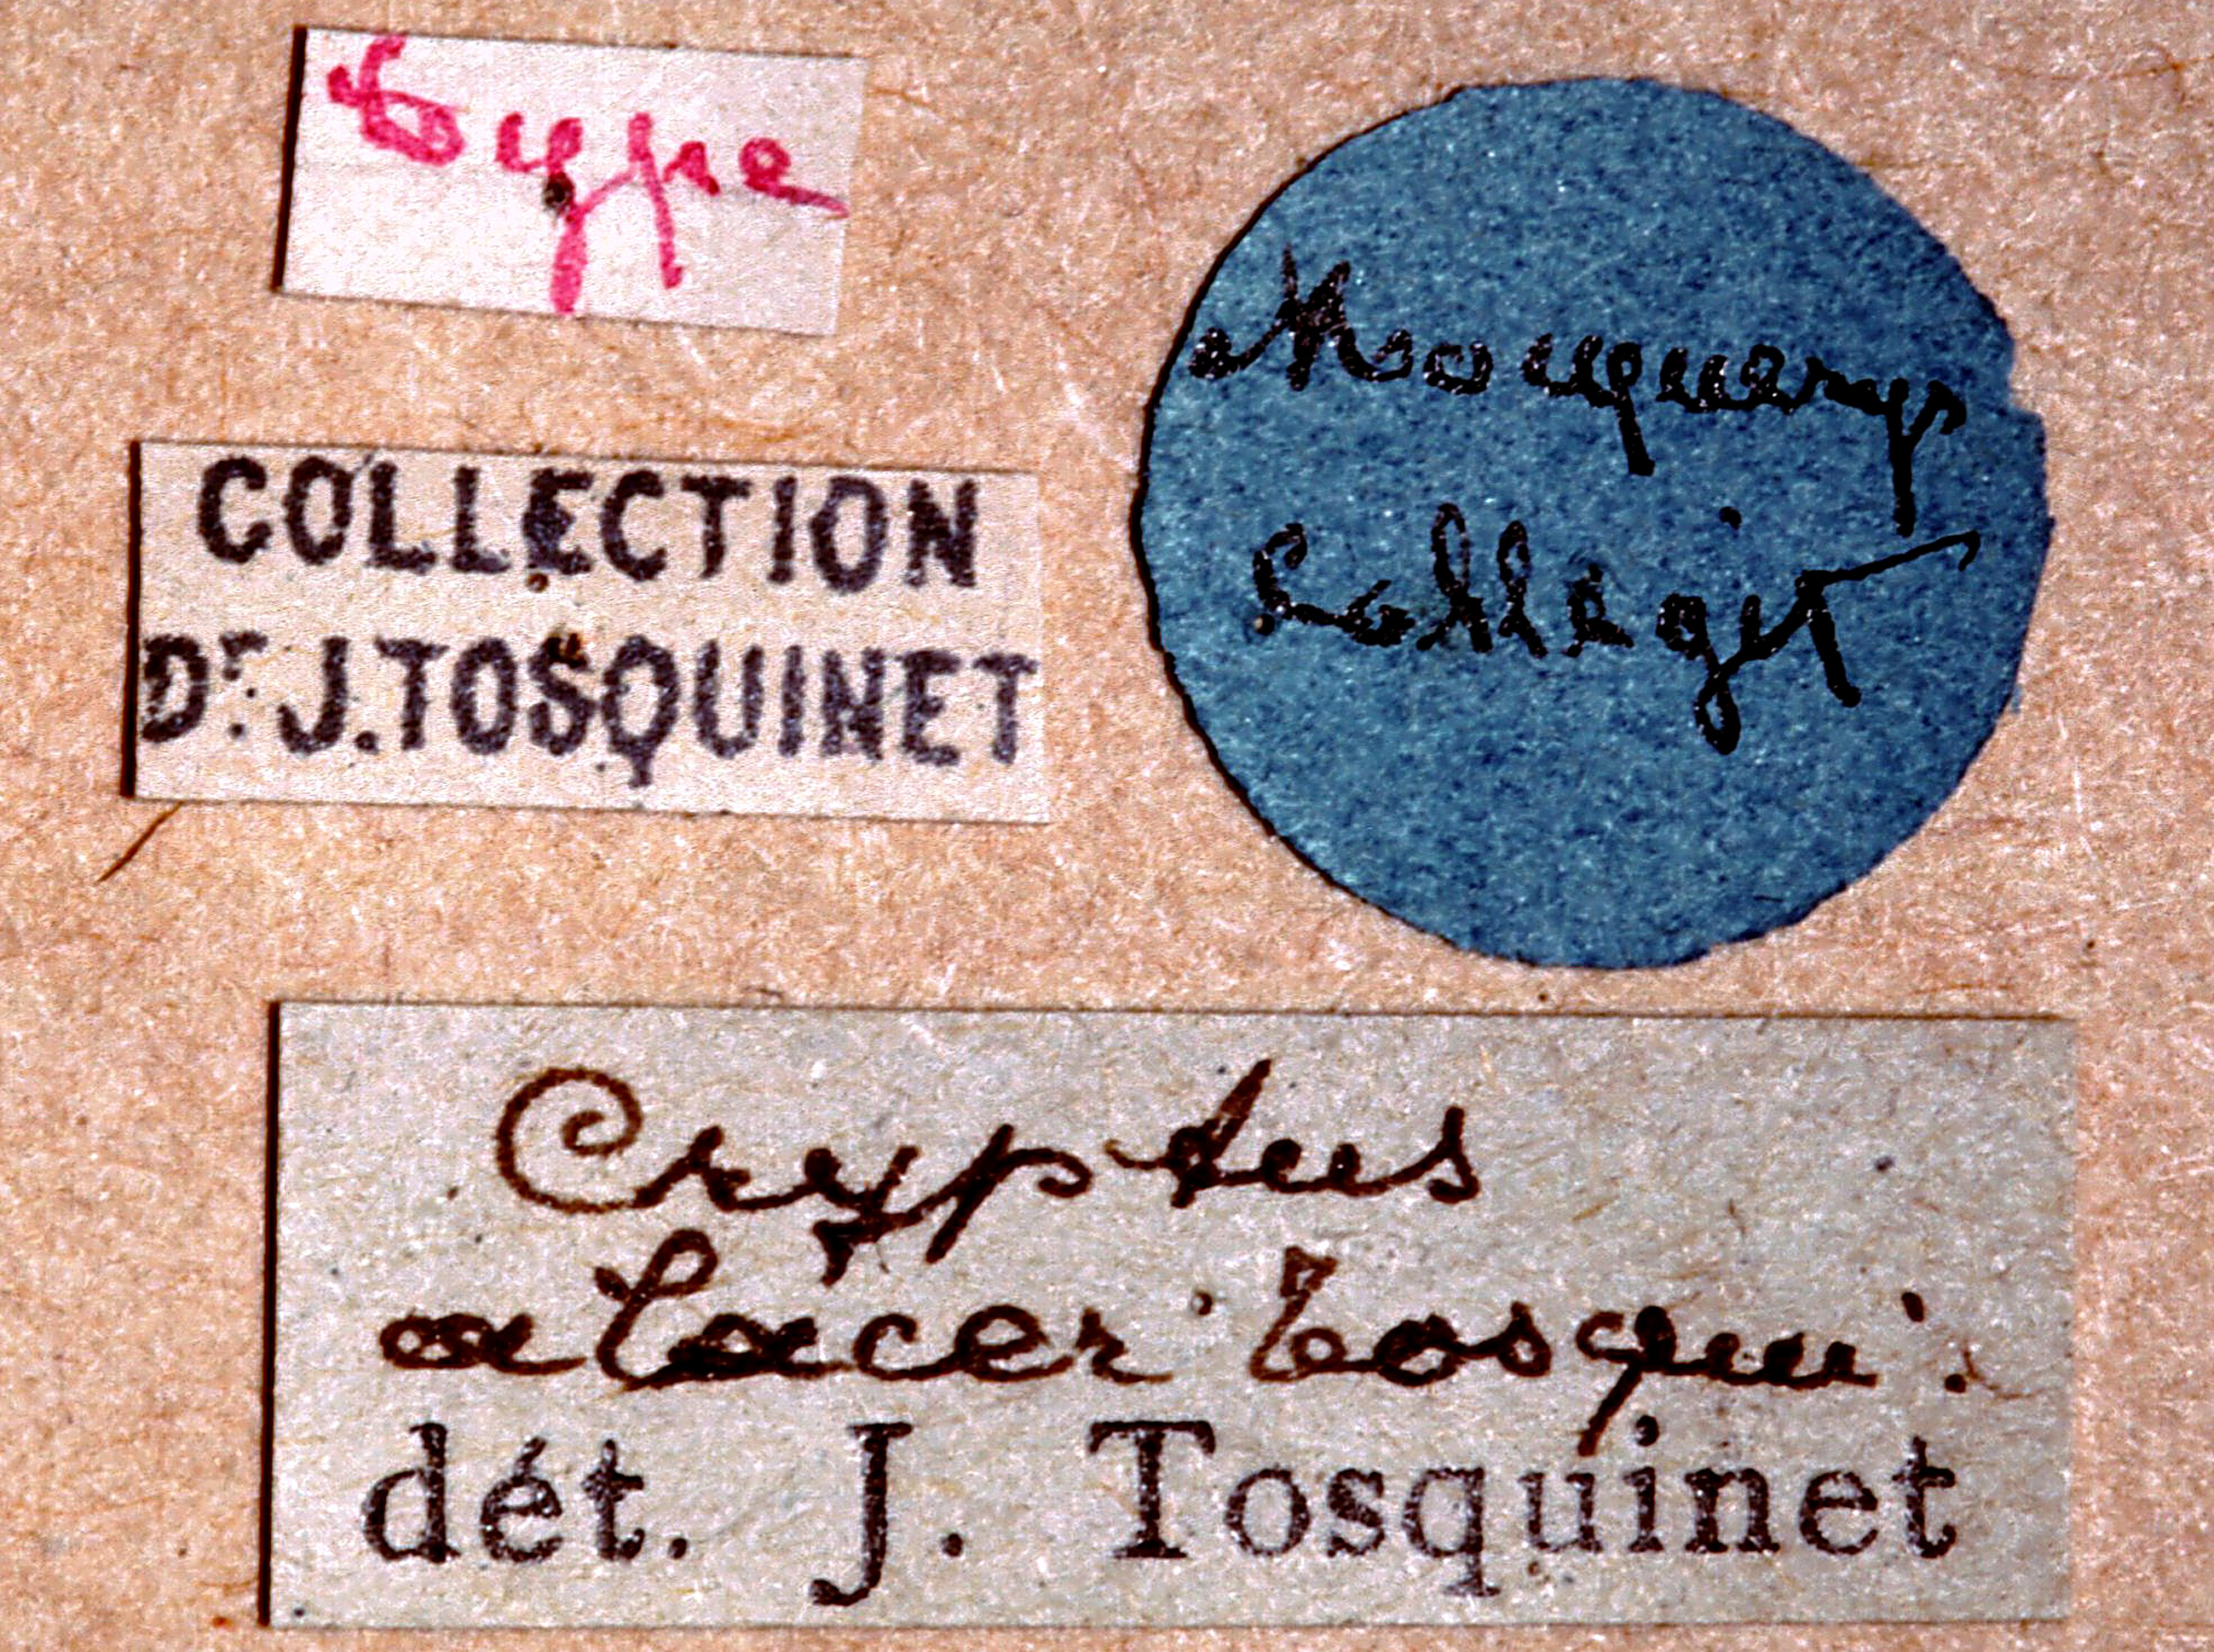 type
COLLECTION
Dr J.TOSQUINET
Mocquerys
Collegit
Cryptus
alacer Tosqui.
dét. J. Tosquinet